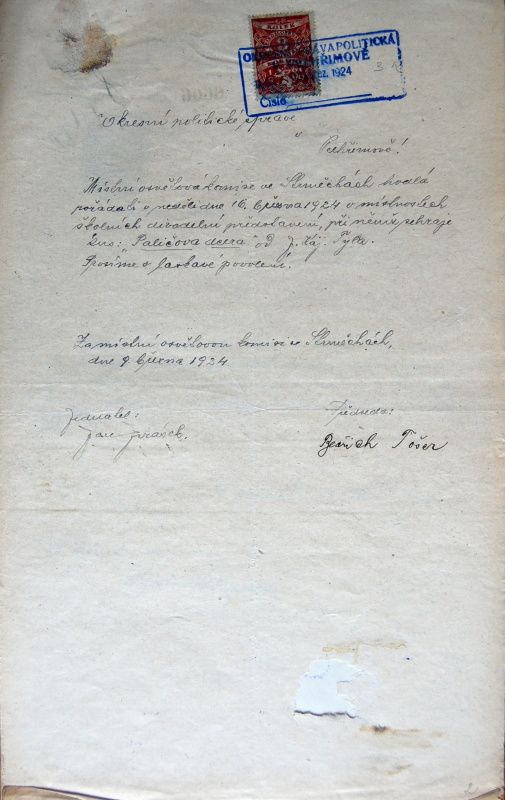 KOLEK
SPRÁVA POLITICKÁ
1924
Číslo
Okresní politické správě
v
Pelhřimově!
Místní osvětová komise ve Slměchách hodlá
pořádati v neděli dne 16. března 1924 v místnostech
školních divadelní představení, při němž sehraje
kus: "Paličova dcera" od J. Kaj. Tyla.
Prosíme o laskavé povolení.
Za místní osvětovou komisi ve Slměchách,
dne 9. března 1924.
Jednatel: Předseda:
Jar. Jirásek. Bedřich Tošer